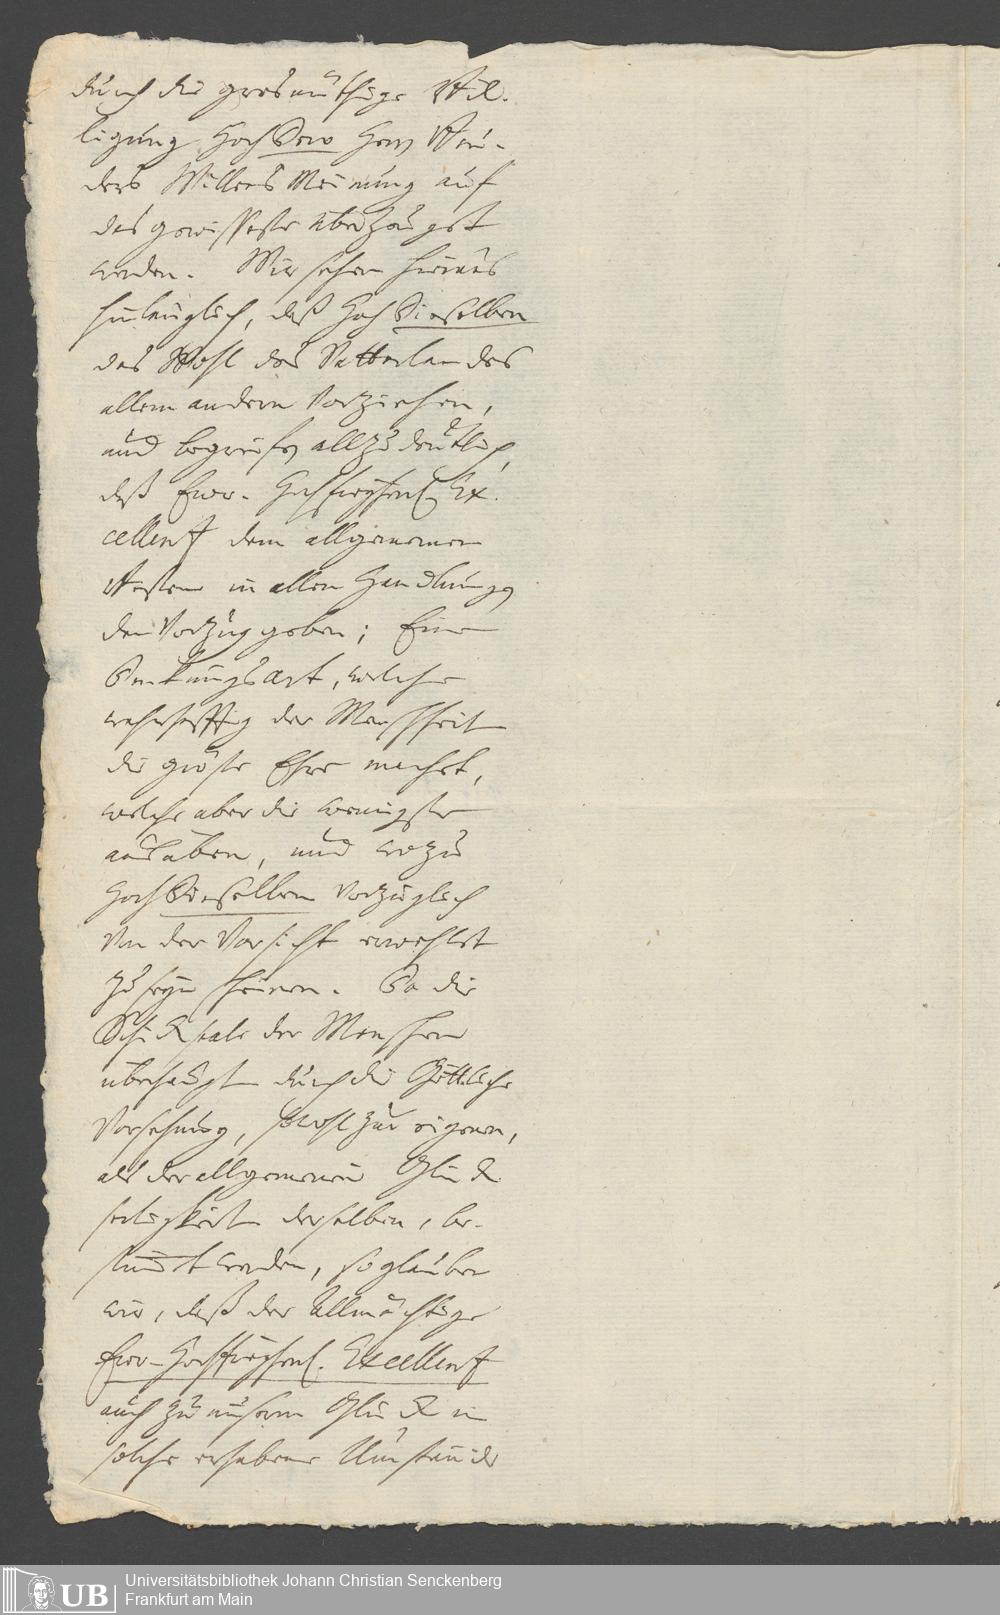 durch die grosmüthige Wil-
ligung Hoch Dero Herrn Bru-
ders Willens Meinung auf
das gewisseste überzeuget
werden. Wir sehen hieraus
hinlänglich, daß Hoch Dieselben
das Wohl des Vatterlandes
allem andern vorziehen,
und begreifen allzu deutlich,
daß Euer Hochfreyherrl. Ex-
cellenz dem allgemeinen
Besten in allen Handlungen
den Vorzug geben; Eine
Denkungsart, welche
wahrhafftig der Menschheit
die gröste Ehre machet,
welche aber die wenigste
ausüben, und wozu
Hoch Dieselben vorzüglich
von der Vorsicht erwehlet
zu seyn scheinen. Da die
Schicksale der Menschen
überhaupt durch die Göttliche
Vorsehung, sowohl zur eigenen,
als der allgemeinen Glück
seeligkeit derselben, be-
stimmt werden, so glauben
wir, daß der Allmächtige
Euer Hochfreyherrl. Excellenz
auch zu unserm Glück in
solche erhabene Umstände
Universitätsbibliothek Johann Christian Senckenberg
Frankfurt am Main
UB